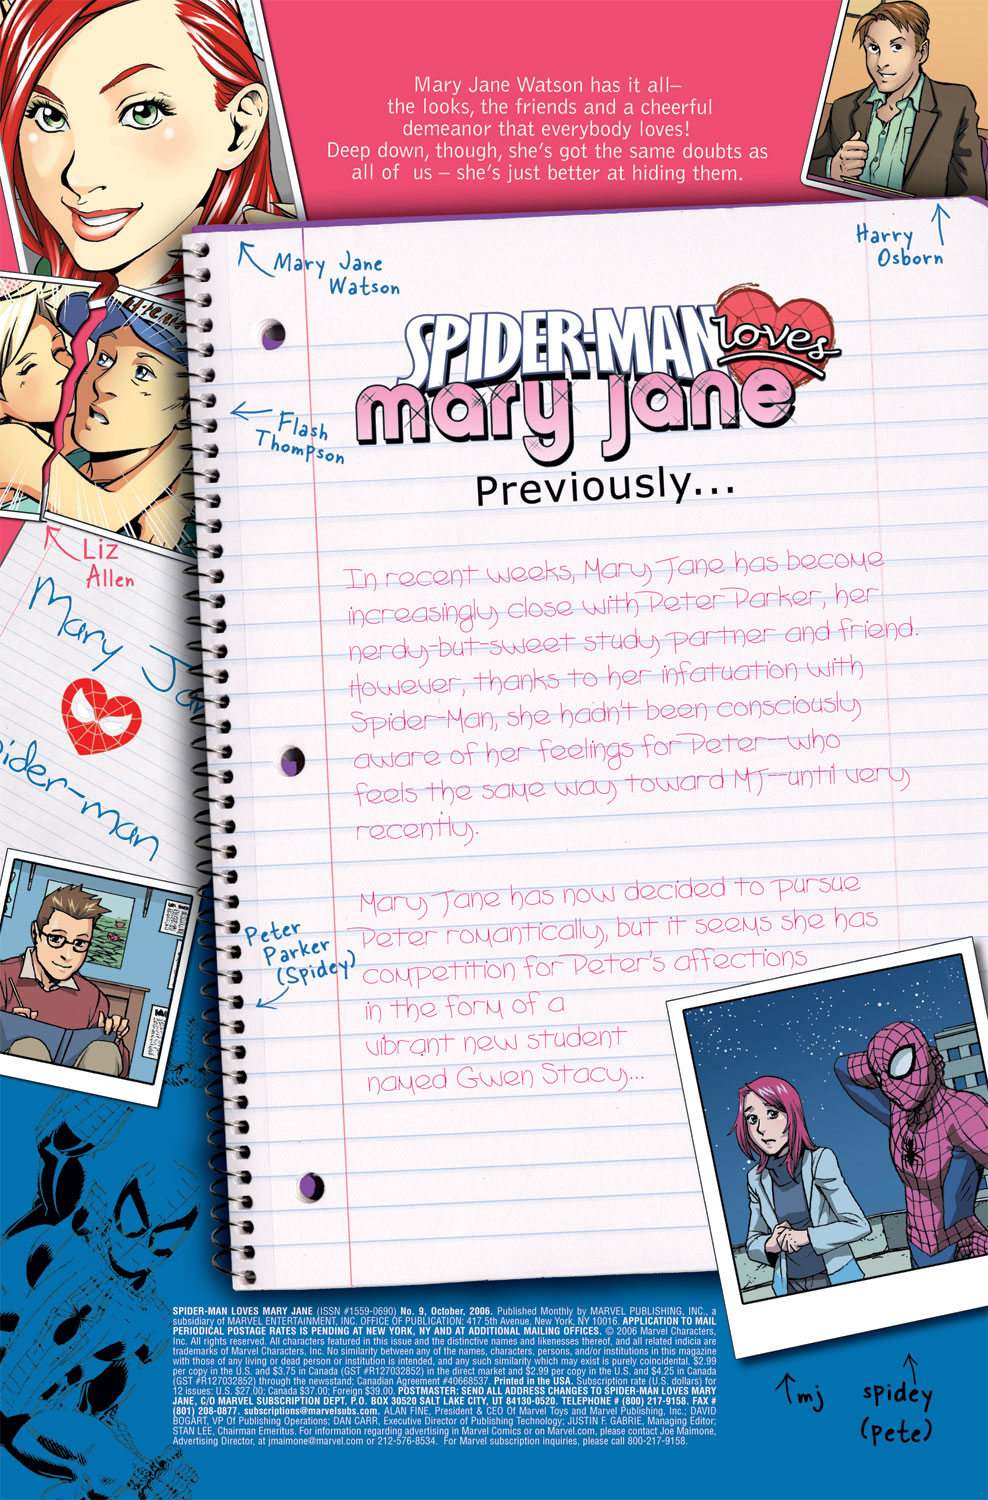 Mary Jane Watson has it all–
the looks, the friends and a cheerful
demeanor that everybody loves!
Deep down, though, she's got the same doubts as
all of us – she's just better at hiding them.
Mary Jane
Watson
Harry
Osborn
SPIDER-MAN
loves
mary jane
Previously...
Flash
Thompson
Liz
Allen
Mary Jan
pider-man
In recent weeks, Mary Jane has become
increasingly close with Peter Parker, her
nerdy-but-sweet study partner and friend.
However, thanks to her infatuation with
Spider-Man, she hadn't been consciously
aware of her feelings for Peter--who
feels the same way toward MJ--until very
recently.
Mary Jane has now decided to pursue
Peter romantically, but it seems she has
competition for Peter's affections
in the form of a
vibrant new student
named Gwen Stacy...
Peter
Parker
(Spidey)
mj
spidey
(pete)
SPIDER-MAN LOVES MARY JANE (ISSN #1559-0690) No. 9, October, 2006. Published Monthly by MARVEL PUBLISHING, INC., a
subsidiary of MARVEL ENTERTAINMENT, INC. OFFICE OF PUBLICATION: 417 5th Avenue, New York, NY 10016. APPLICATION TO MAIL
PERIODICAL POSTAGE RATES IS PENDING AT NEW YORK, NY AND AT ADDITIONAL MAILING OFFICES. © 2006 Marvel Characters,
Inc. All rights reserved. All characters featured in this issue and the distinctive names and likenesses thereof, and all related indicia are
trademarks of Marvel Characters, Inc. No similarity between any of the names, characters, persons, and/or institutions in this magazine
with those of any living or dead person or institution is intended, and any such similarity which may exist is purely coincidental. $2.99
per copy in the U.S. and $3.75 in Canada (GST #R127032852) in the direct market and $2.99 per copy in the U.S. and $4.25 in Canada
(GST #R127032852) through the newsstand; Canadian Agreement #40668537. Printed in the USA. Subscription rate (U.S. dollars) for
12 issues: U.S. $27.00; Canada $37.00; Foreign $39.00. POSTMASTER: SEND ALL ADDRESS CHANGES TO SPIDER-MAN LOVES MARY
JANE, C/O MARVEL SUBSCRIPTION DEPT. P.O. BOX 30520 SALT LAKE CITY, UT 84130-0520. TELEPHONE # (800) 217-9158. FAX #
(801) 208-0877. subscriptions@marvelsubs.com. ALAN FINE, President & CEO Of Marvel Toys and Marvel Publishing, Inc.; DAVID
BOGART, VP Of Publishing Operations; DAN CARR, Executive Director of Publishing Technology; JUSTIN F. GABRIE, Managing Editor;
STAN LEE, Chairman Emeritus. For information regarding advertising in Marvel Comics or on Marvel.com, please contact Joe Maimone,
Advertising Director, at jmaimone@marvel.com or 212-576-8534. For Marvel subscription inquiries, please call 800-217-9158.